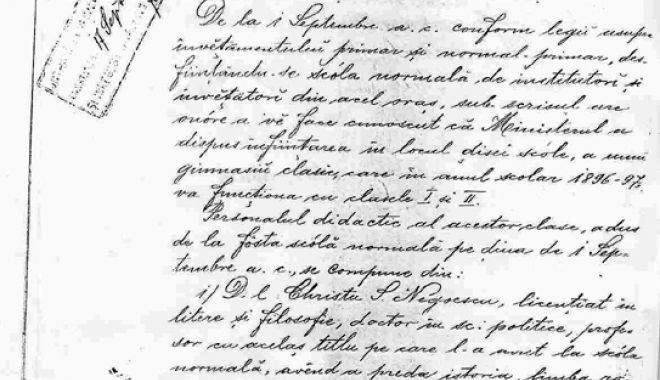 17 Sept
De la 1 Septembre a. c. conform legii asupra
învĕțămêntului primar și normal-primar, des-
ființându-se scóla normală de institutori și
învĕțători din acel oraș, sub-scrisul are
onóre a vĕ face cunoscut că Ministerul a
dispus înființarea în locul disei scóle, a unui
gimnasiŭ clasic, care în anul școlar 1896-97,
va funcționa cu clasele I și II.
Personalul didactic al acestor clase, adus
de la fósta scólă normală pe diua de 1 Sep-
tembre a. c., se compune din:
1) D-l Christu S. Negoescu, licențiat în
litere și filosofie, doctor în sc. politice, profe-
sor cu acelaș titlu pe care l-a avut la scóla
normală, avênd a preda istoria, limba